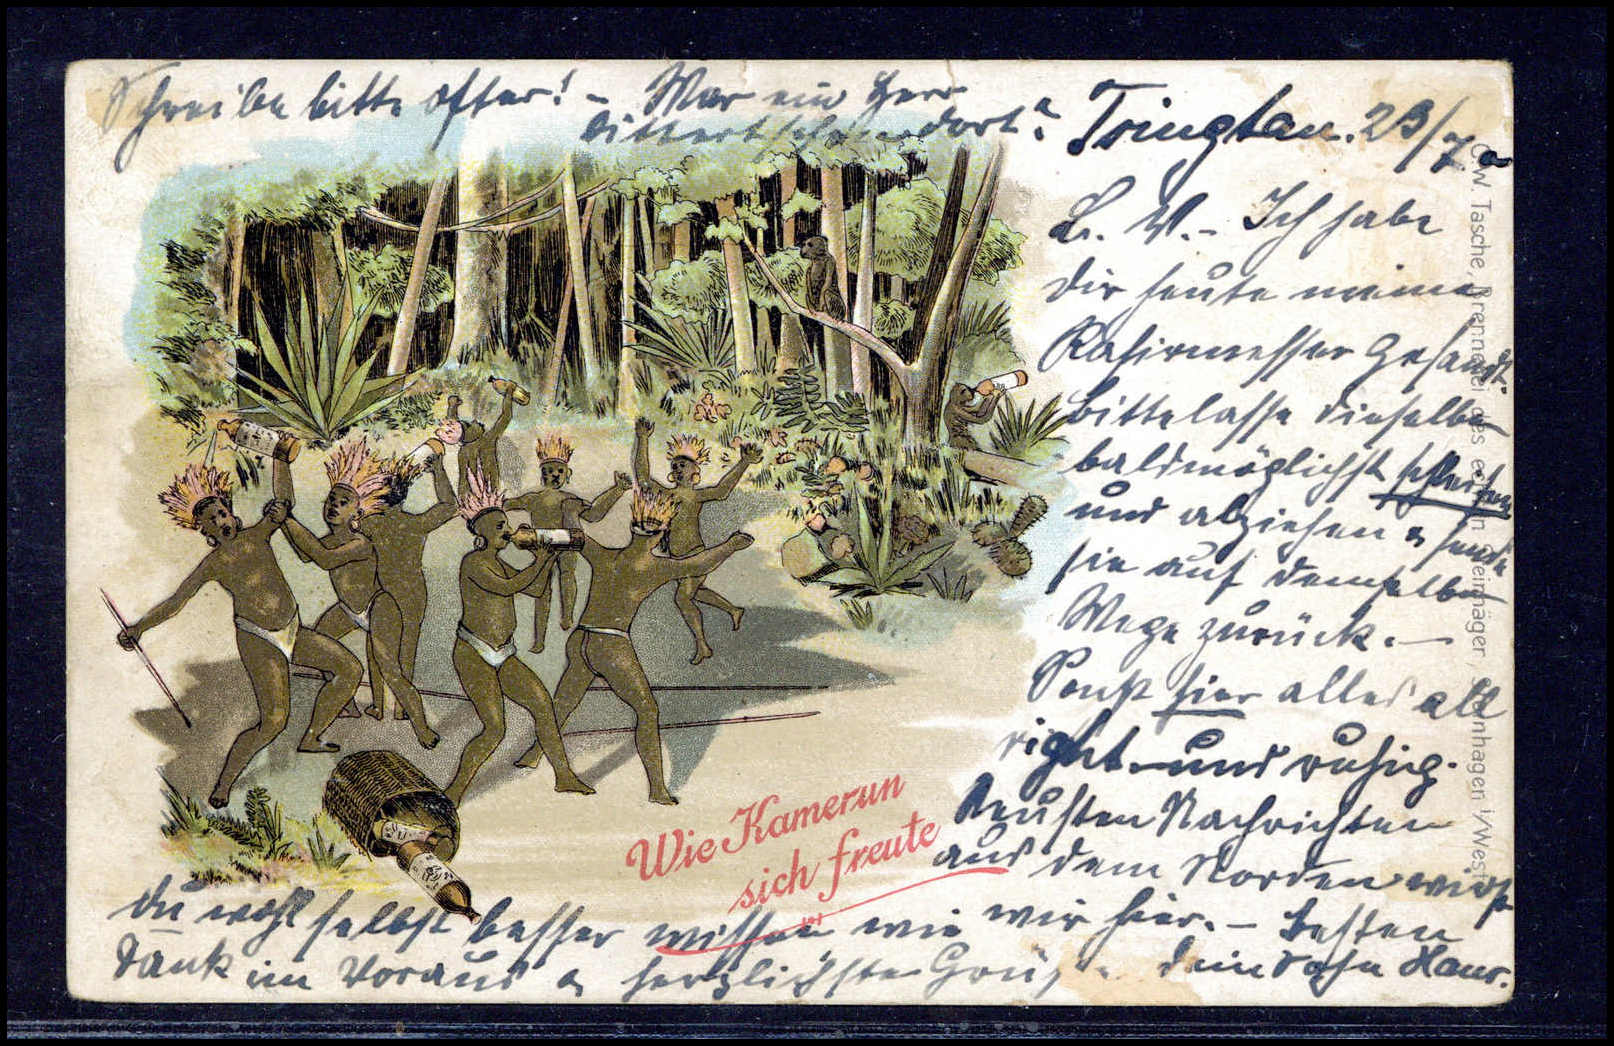 Schreibe bitte öfter! – War ein Herr
dort?
Tsingtau. 23/7
L. V. – Ich habe
dir heute meine
Rasirmesser gesandt.
Bitte lasse dieselben
baldmöglichst schleifen
und abziehen & sende
sie auf demselben
Wege zurück. –
Sonst hier alles all
right und ruhig.
Neusten Nachrichten
aus dem Norden wirst
du wohl selbst besser wissen wie wir hier. – Besten
Dank im Voraus & herzlichste Grüße dein Sohn Hans.
Wie Kamerun
sich freute
C.W. Tasche, Brennerei des echten Steinhäger, Steinhagen i/Westf.